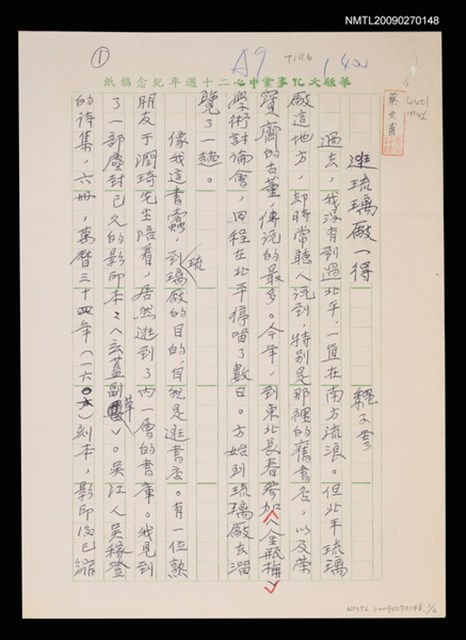 NMTL20090270148
①
A9
T146
華服文化事業中心二十週年紀念稿紙
逛琉璃廠一得
魏子雲
過去，我沒有到過北平，一直在南方流浪。但北平琉璃
廠這地方，却時常聽人説到，特別是那裡的舊書店，以及榮
寶齋的古董，傳説的最多。今年，到東北長春參加〈金瓶梅〉
學術討論會，回程在北平停留了數日。方始到琉璃廠去溜
覽了一趟。
像我這書蠹，到琉璃廠的目的，自然是逛書店。有一位熟
朋友于潤琦先生陪着，居然逛到了內一會的書庫。我見到
了一部塵封已久的影印本〈玄蓋副草〉。吳江人吳稼竳
的詩集，六冊，萬曆三十四年（一六〇六）刻本，影印後已縮
NMTL 20090270148 1/6